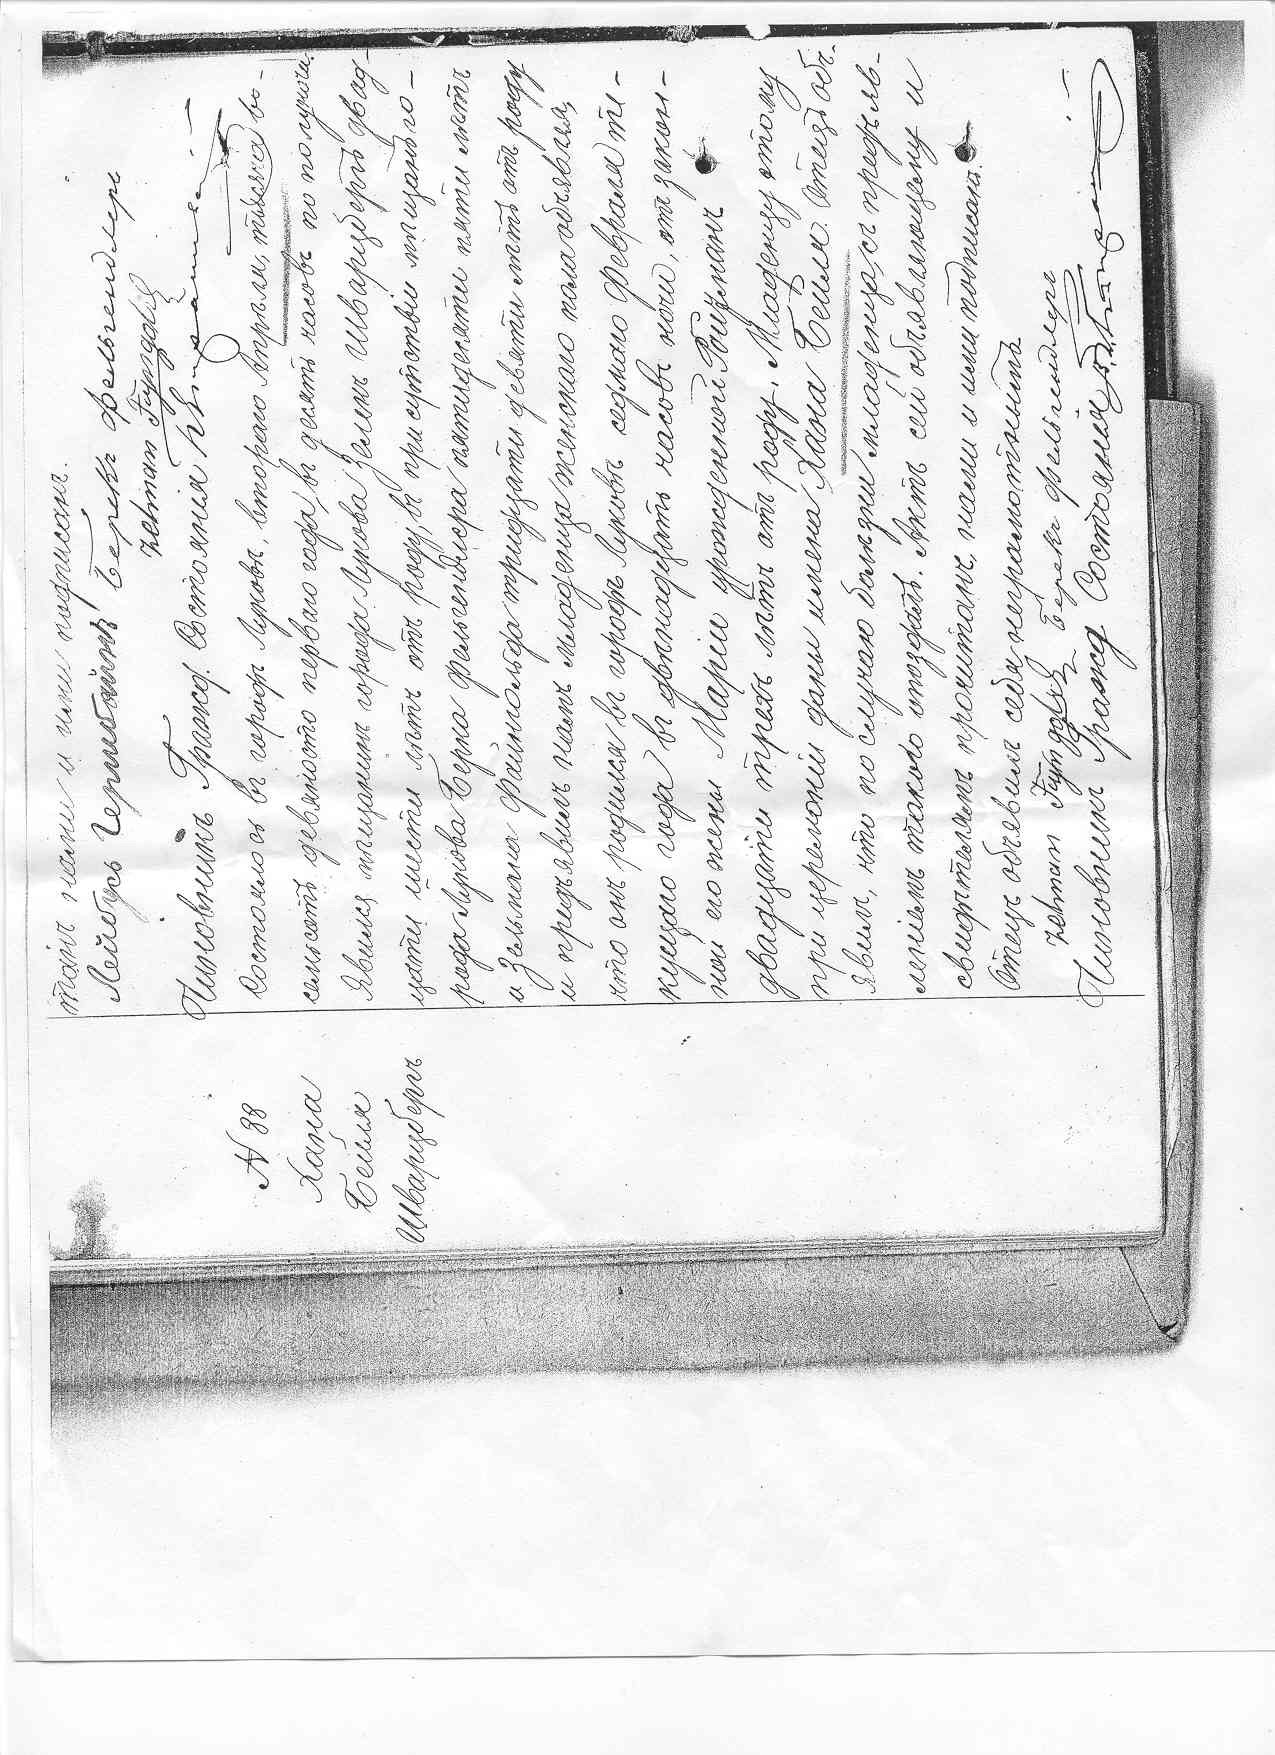 танъ нами и ими подписанъ.
Лейбусь Берекъ Фельгендлеръ
Зельман
Чиновникъ Гражд. Состоянія
N 38
Хана
Бейля
Шварцбергъ
Состоялось въ городѣ Луковѣ, втораго Апрѣля, тысяча во-
семьсотъ девяносто перваго года, въ десять часовъ по полуночи.
Явился мѣщанинъ города Лукова Зелик Шварцбергъ двад-
цати шести лѣтъ отъ роду, въ присутствіи мѣщанъ го-
рода Лукова Берка Фельгендлера пятидесяти пяти лѣтъ
и Зельмана тридцати девяти лѣтъ отъ роду
и предъявилъ намъ младенца женскаго пола объявляя,
что онъ родился въ городѣ Луковѣ седьмаго Февраля те-
кущаго года въ двѣнадцать часовъ ночи, отъ закон-
ной его жены Маріи урожденной Ройзманъ
двадцати трехъ лѣтъ отъ роду. Младенцу этому
при церемоніи даны имена Хана Бейля. Отецъ объ-
явилъ, что по случаю болѣзни младенца, съ предъяв-
леніемъ такаго опоздалъ. Актъ сей объявляющему и
свидѣтелямъ прочитанъ, нами и ими подписанъ.
Отецъ объявилъ себя неграмотнымъ
Зельман Берек Фельгендлеръ
Чиновникъ Гражд Состоянія